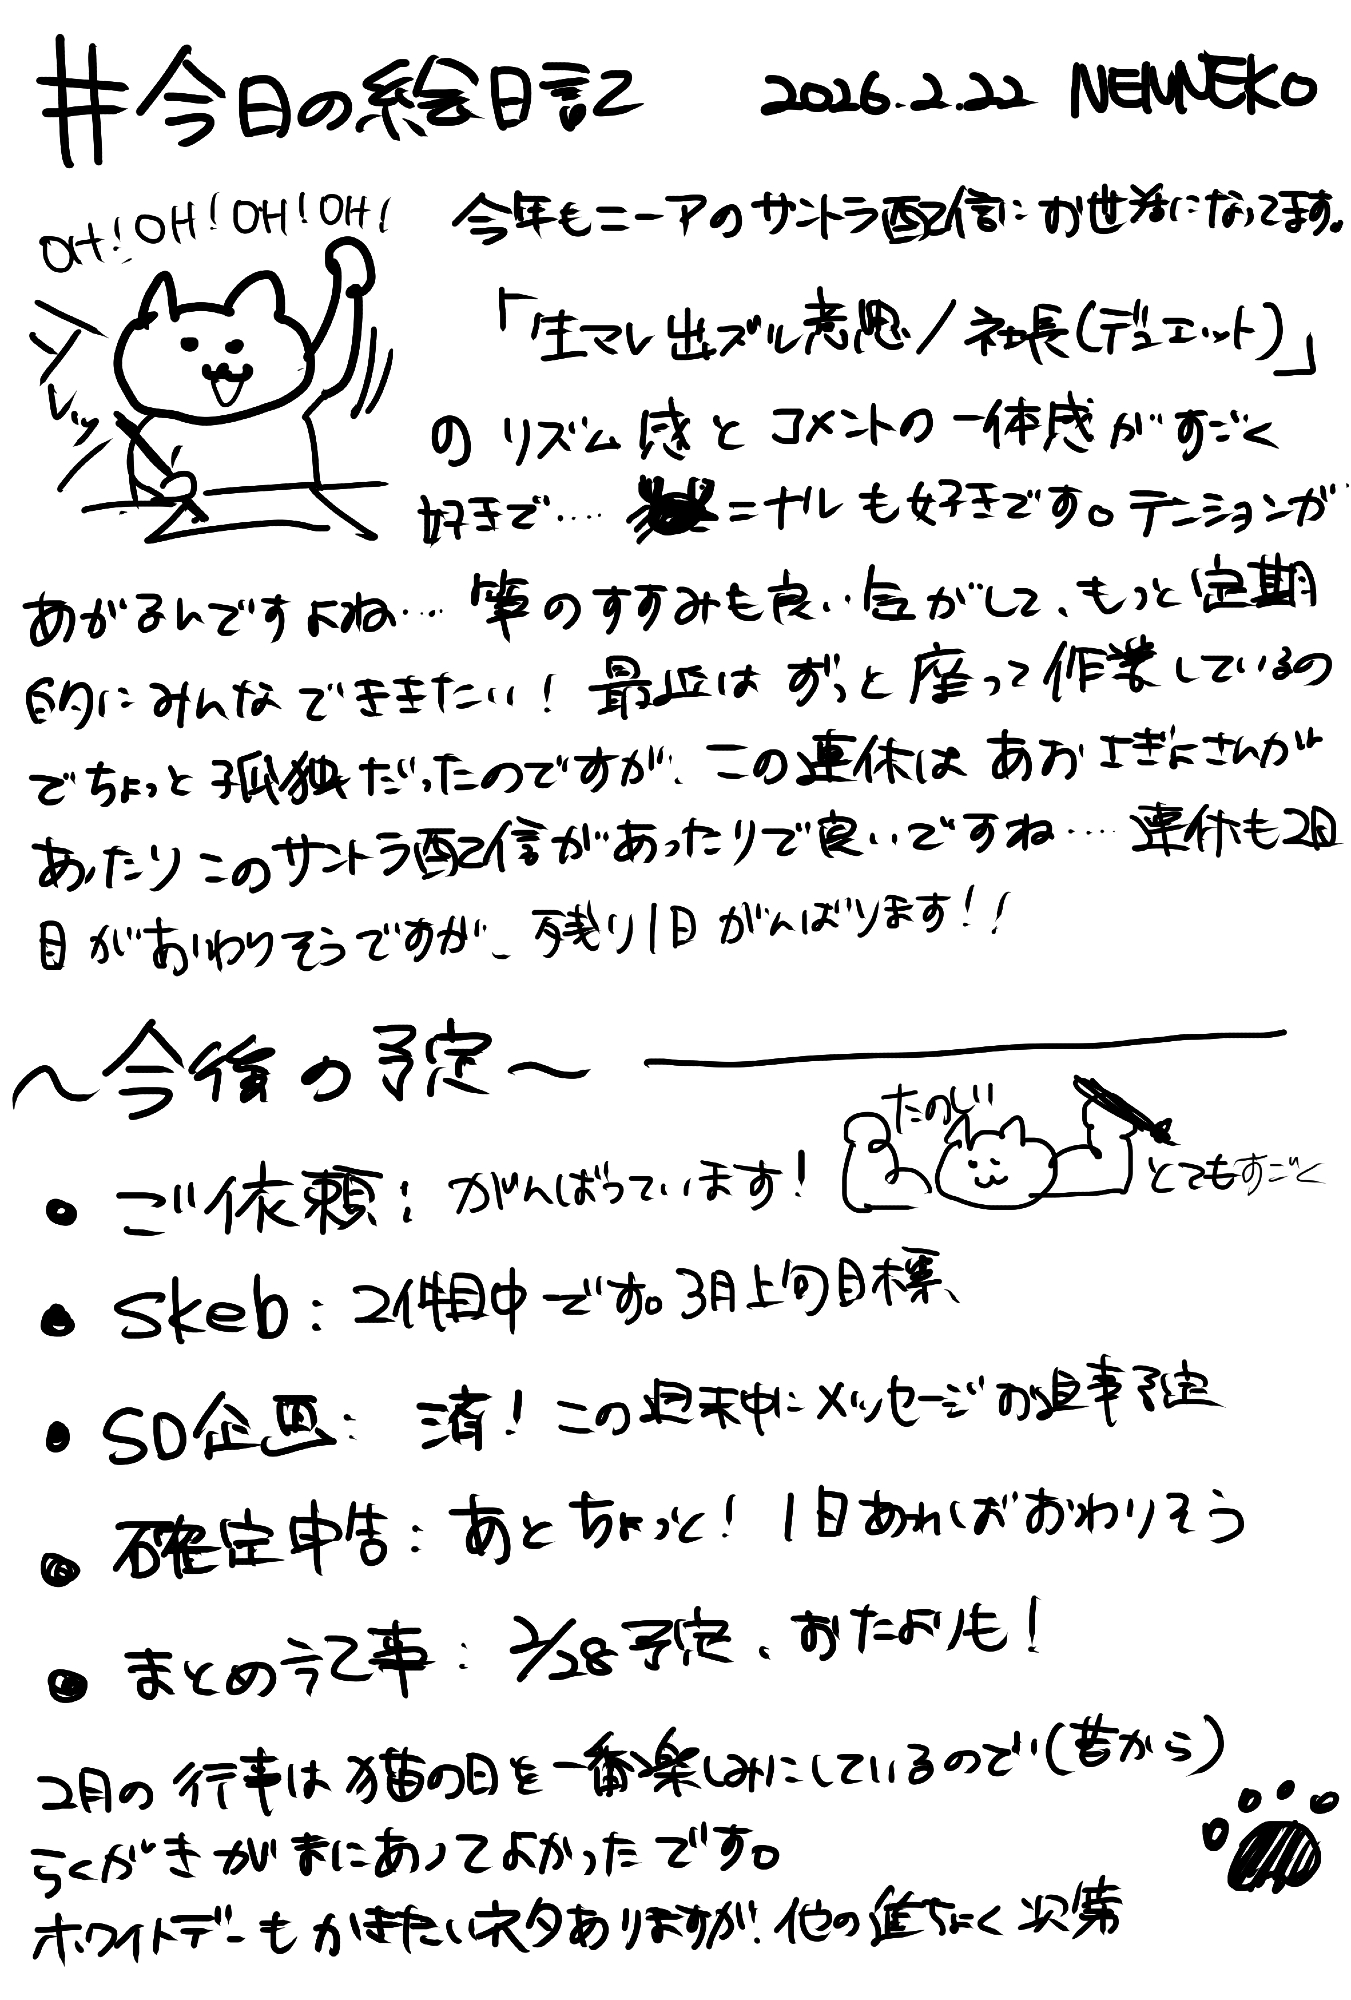 #今日の絵日記 2026.2.22 NENNEKO
OH! OH! OH! OH!
今年もニーアのサントラ配信にお世話になってます。
「生マレ出ズル意思/社長(デュエット)」
のリズム感とコメントの一体感がすごく
好きで…. =ナルも好きです。テンションが
あがるんですよね….筆のすすみも良い気がして、もっと定期
的にみんなでききたい!最近はずっと座って作業しているの
でちょっと孤独だったのですが、この連休はあおぎぎょさんが
あったりこのサントラ配信があったりで良いですね….連休も2日
目がおわりそうですが、残り1日がんばります!!
〜今後の予定〜
たのしい
とてもすごく
● ご依頼: がんばっています!
● Skeb: 2件目中です。3月上旬目標、
● SD企画: 済! この週末中にメッセージお返事予定
● 確定申告: あとちょっと! 1日あればおわりそう
● まとめ記事: 2/28予定、おたよりも!
2月の行事は猫の日を一番楽しみにしているので(昔から)
らくがきがまにあってよかったです。
ホワイトデーもかきたいネタありますが、他の進ちょく次第